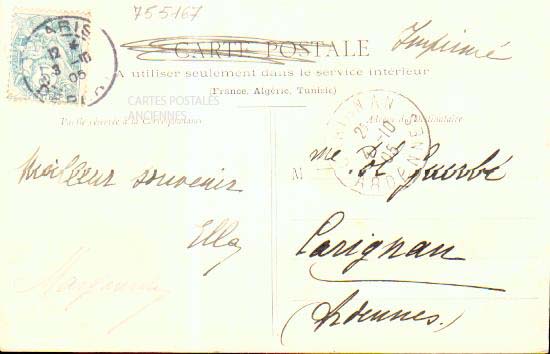 755167
PARIS
12
3 -10
05
CARTE POSTALE
Imprimé
A utiliser seulement dans le service intérieur
(France, Algérie, Tunisie)
CARTES POSTALES
ANCIENNES
Partie réservée à la Correspondance
Adresse du Destinataire
CARIGNAN
4 -10
05
ARDENNES
Meilleur souvenir
Ella
M
Me
Guerbé
Carignan
(Ardennes.)